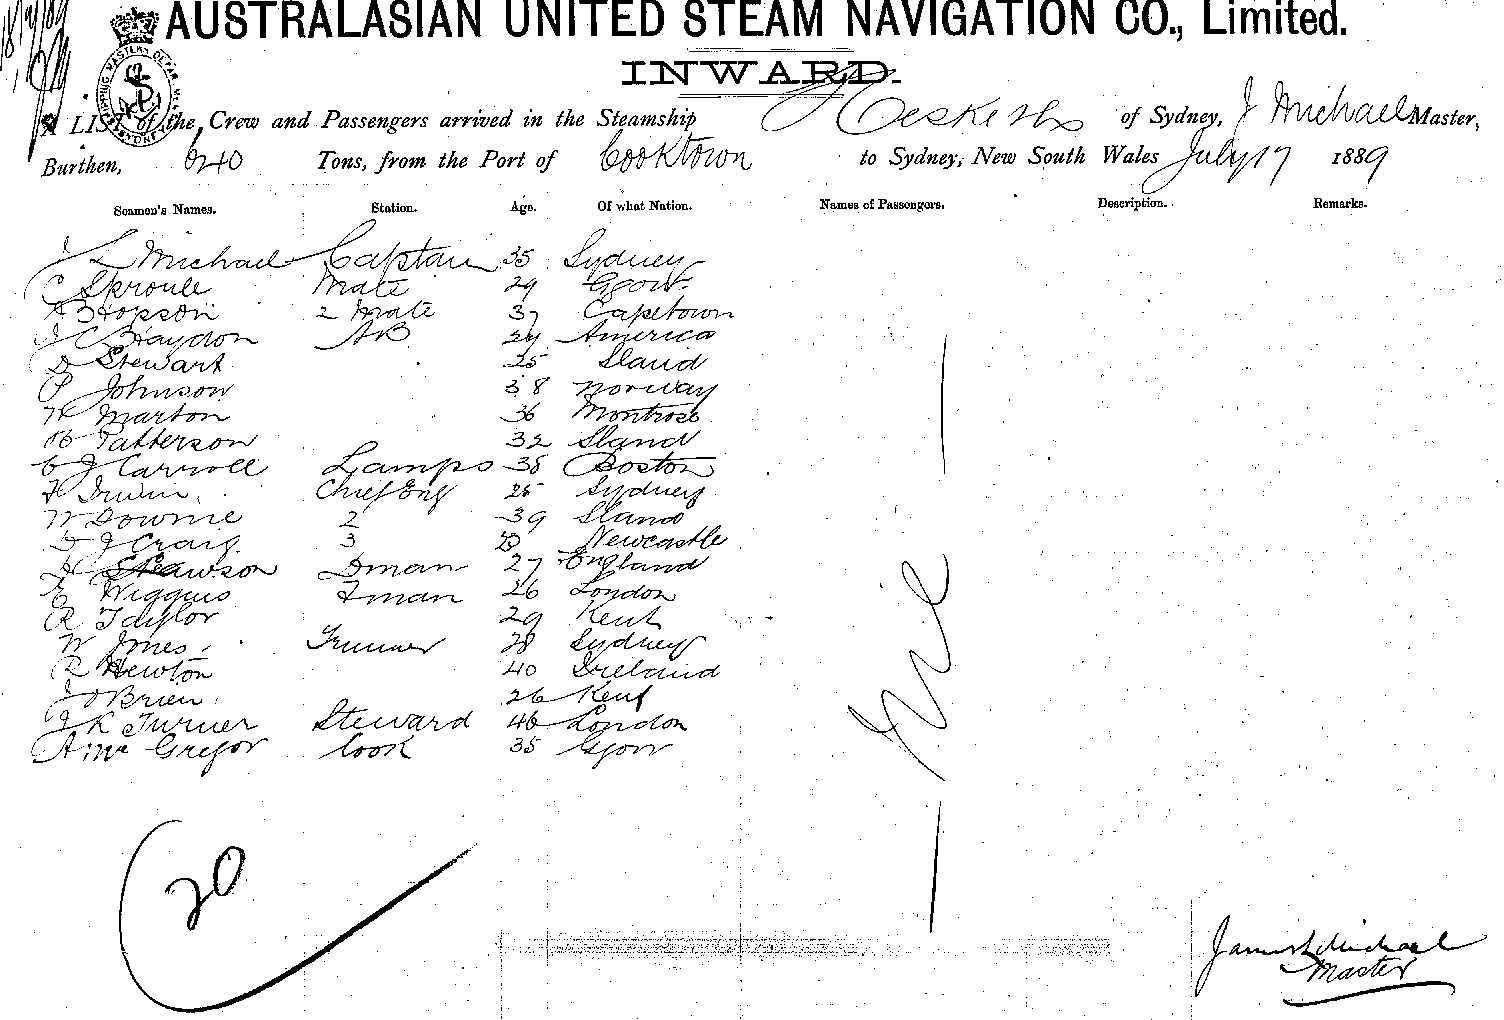 18/7/89
AUSTRALASIAN UNITED STEAM NAVIGATION CO., Limited.
INWARD.
A LIST of the Crew and Passengers arrived in the Steamship Hesketh of Sydney, J Michael Master,
Burthen, 640 Tons, from the Port of Cooktown to Sydney, New South Wales July 17 1889
Seamen's Names. Station. Age. Of what Nation. Names of Passengers. Description. Remarks.
J L Michael Captain 35 Sydney
C Sproule Mate 29 Ggow
A B Hopson 2 Mate 37 Capetown
J C Haydon AB 24 America
D Stewart 25 Sland
P Johnson 38 Norway
H Marton 36 Montrose
Patterson 32 Sland
C J Carroll Lamps 38 Boston
Irwin Chief Eng 25 Sydney
W Downie 2 39 Sland
D J Craig 3 Newcastle
Dman 27 England
E Wiggins Fman 26 London
R Taylor 29 Kent
W Jones Trimmer 28 Sydney
R Hewton 40 Ireland
J O'Brien 26 Kent
J K Turner Steward 46 London
A McGregor Cook 35 Ggow
Nil
20
James L Michael
Master